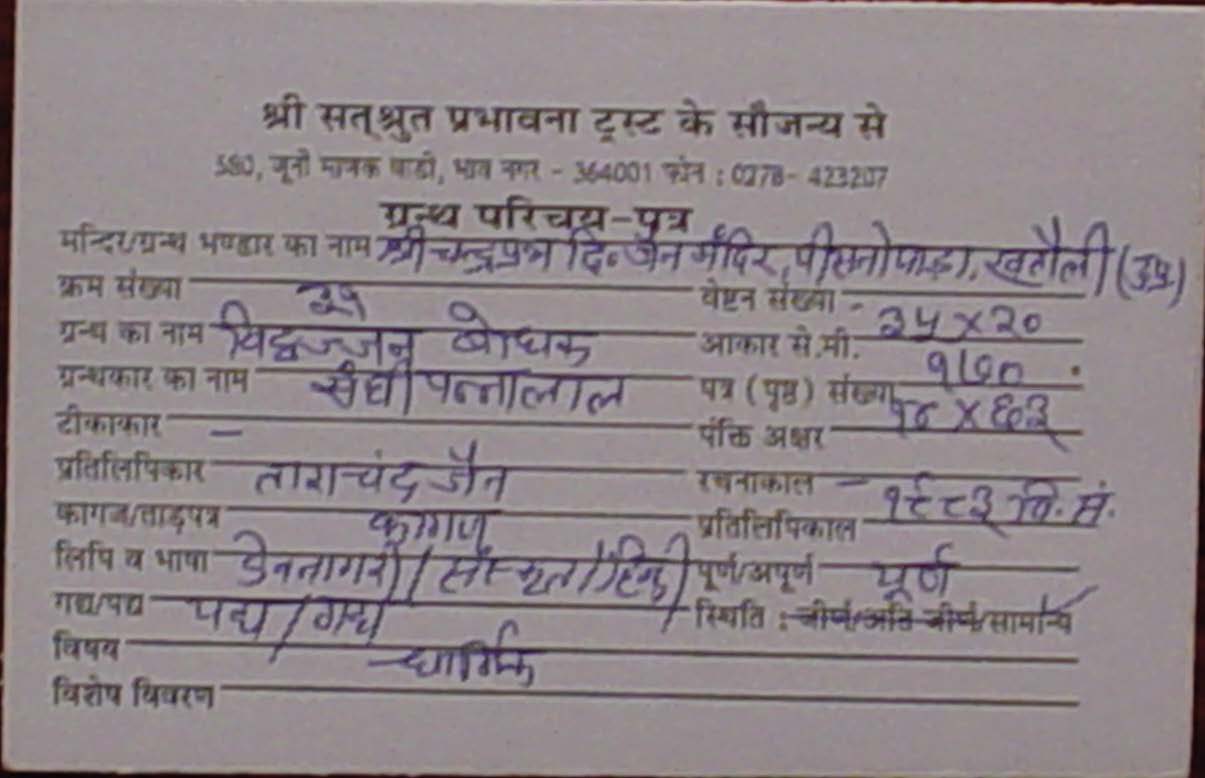 श्री सत्श्रुत प्रभावना ट्रस्ट के सौजन्य से
580, जूनी माणेक वाडी, भाव नगर - 364001 फोन : 0278- 423207
ग्रन्थ परिचय-पत्र
मन्दिर/ग्रन्थ भण्डार का नाम श्री चन्द्रप्रभ दि० जैन मंदिर, खतौली (उ.प्र.)
क्रम संख्या ३५ वेष्टन संख्या -
ग्रन्थ का नाम विद्वज्जन बोधक आकार से.मी. ३५ X २०
ग्रन्थकार का नाम संघी पन्नालाल पत्र (पृष्ठ) संख्या १७०
टीकाकार - पंक्ति अक्षर १४ X ६३
प्रतिलिपिकार ताराचंद जैन रचनाकाल -
कागज/ताड़पत्र कागज प्रतिलिपिकाल १९८३ वि. सं.
लिपि व भाषा देवनागरी / संस्कृत / हिन्दी पूर्ण/अपूर्ण पूर्ण
गद्य/पद्य पद्य / गद्य स्थिति : जीर्ण/अति जीर्ण/सामान्य
विषय धार्मिक
विशेष विवरण